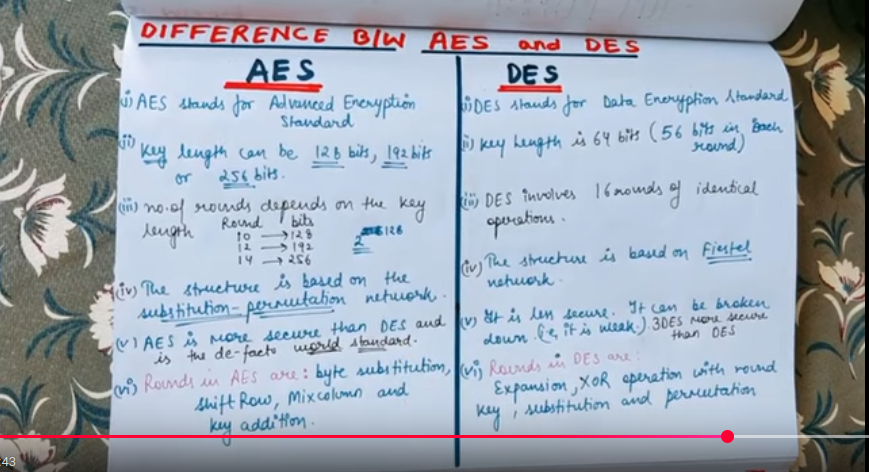 DIFFERENCE B/W AES and DES
AES
(i) AES stands for Advanced Encryption
Standard
(ii) Key length can be 128 bits, 192 bits
or 256 bits.
(iii) no. of rounds depends on the key
length
Round bits
10 → 128
12 → 192
14 → 256
2 128
(iv) The structure is based on the
substitution-permutation network.
(v) AES is more secure than DES and
is the de-facto world standard.
(vi) Rounds in AES are: byte substitution,
Shift Row, Mixcolumn and
key addition.
DES
(i) DES stands for Data Encryption Standard
(ii) Key Length is 64 bits (56 bits in Each
round)
(iii) DES involves 16 rounds of identical
operations.
(iv) The structure is based on Fiestel
network.
(v) It is less secure. It can be broken
down. (i.e, it is weak.) 3DES more secure
than DES
(vi) Rounds in DES are:
Expansion, XOR operation with round
key, substitution and permutation
:43